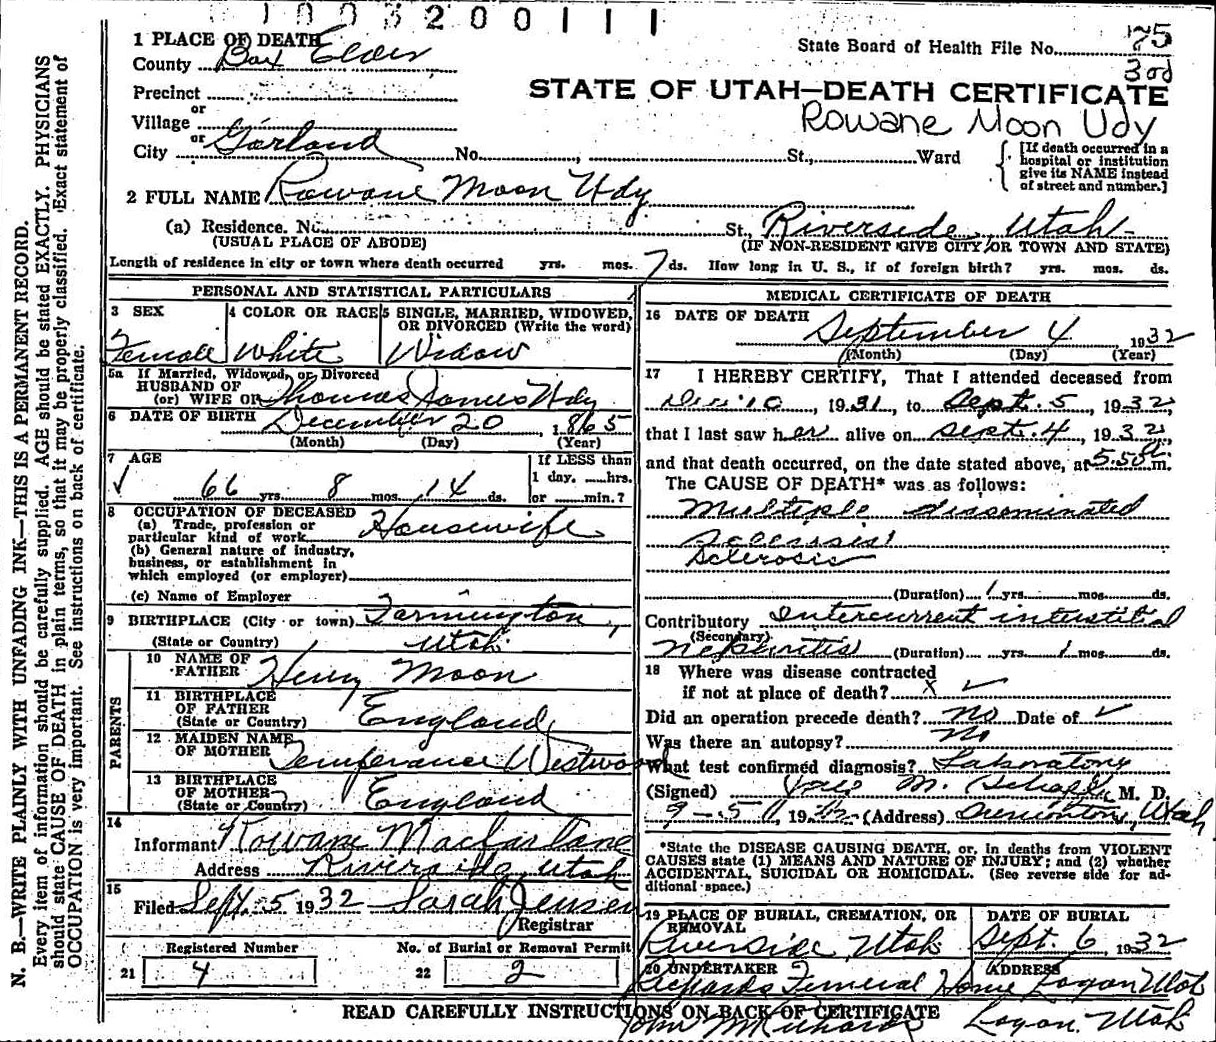 1003200111
1 PLACE OF DEATH
County Box Elder
State Board of Health File No. 75
3rd
Precinct
or
Village
or
City Garland No. , St., Ward
STATE OF UTAH—DEATH CERTIFICATE
Rowane Moon Udy
[If death occurred in a
hospital or institution
give its NAME instead
of street and number.]
2 FULL NAME Rowane Moon Udy
(a) Residence. No. St., Riverside, Utah
(USUAL PLACE OF ABODE) (IF NON-RESIDENT GIVE CITY OR TOWN AND STATE)
Length of residence in city or town where death occurred yrs. mos. 7 ds. How long in U. S., if of foreign birth? yrs. mos. ds.
PERSONAL AND STATISTICAL PARTICULARS
3 SEX
Female
4 COLOR OR RACE
White
5 SINGLE, MARRIED, WIDOWED,
OR DIVORCED (Write the word)
Widow
5a If Married, Widowed, or Divorced
HUSBAND OF
(or) WIFE OF Thomas James Udy
6 DATE OF BIRTH December 20, 1865
(Month) (Day) (Year)
7 AGE
66 yrs. 8 mos. 14 ds.
If LESS than
1 day. hrs.
or min.?
8 OCCUPATION OF DECEASED
(a) Trade, profession or
particular kind of work Housewife
(b) General nature of industry,
business, or establishment in
which employed (or employer)
(c) Name of Employer
9 BIRTHPLACE (City or town) Farmington,
(State or Country) Utah
PARENTS
10 NAME OF
FATHER Henry Moon
11 BIRTHPLACE
OF FATHER
(State or Country) England
12 MAIDEN NAME
OF MOTHER Temperance Westwood
13 BIRTHPLACE
OF MOTHER
(State or Country) England
14
Informant Rowane Macfarlane
Address Riverside, Utah
15
Filed Sept. 5 1932 Sarah Jensen
Registrar
Registered Number No. of Burial or Removal Permit
21 4 22 2
MEDICAL CERTIFICATE OF DEATH
16 DATE OF DEATH
September 4 1932
(Month) (Day) (Year)
17 I HEREBY CERTIFY, That I attended deceased from
Dec. 10, 1931, to Sept. 5, 1932,
that I last saw her alive on Sept. 4, 1932
and that death occurred, on the date stated above, at 5.50 m.
The CAUSE OF DEATH* was as follows:
Multiple disseminated
sclerosis
(Duration) 1 yrs. mos. ds.
Contributory Intercurrent interstitial
(Secondary)
Nephritis (Duration) yrs. 1 mos. ds.
18 Where was disease contracted
if not at place of death? x
Did an operation precede death? no Date of
Was there an autopsy? no
What test confirmed diagnosis? Laboratory
(Signed) M. M. D.
9-5, 1932 (Address) Tremonton, Utah
*State the DISEASE CAUSING DEATH, or, in deaths from VIOLENT
CAUSES state (1) MEANS AND NATURE OF INJURY; and (2) whether
ACCIDENTAL, SUICIDAL OR HOMICIDAL. (See reverse side for ad-
ditional space.)
19 PLACE OF BURIAL, CREMATION, OR
REMOVAL
Riverside, Utah
DATE OF BURIAL
Sept. 6, 1932
20 UNDERTAKER ADDRESS
Richards Funeral Home Logan Utah
READ CAREFULLY INSTRUCTIONS ON BACK OF CERTIFICATE
John M Richards Logan, Utah
N. B.—WRITE PLAINLY WITH UNFADING INK—THIS IS A PERMANENT RECORD.
Every item of information should be carefully supplied. AGE should be stated EXACTLY. PHYSICIANS
should state CAUSE OF DEATH in plain terms, so that it may be properly classified. Exact statement of
OCCUPATION is very important. See instructions on back of certificate.